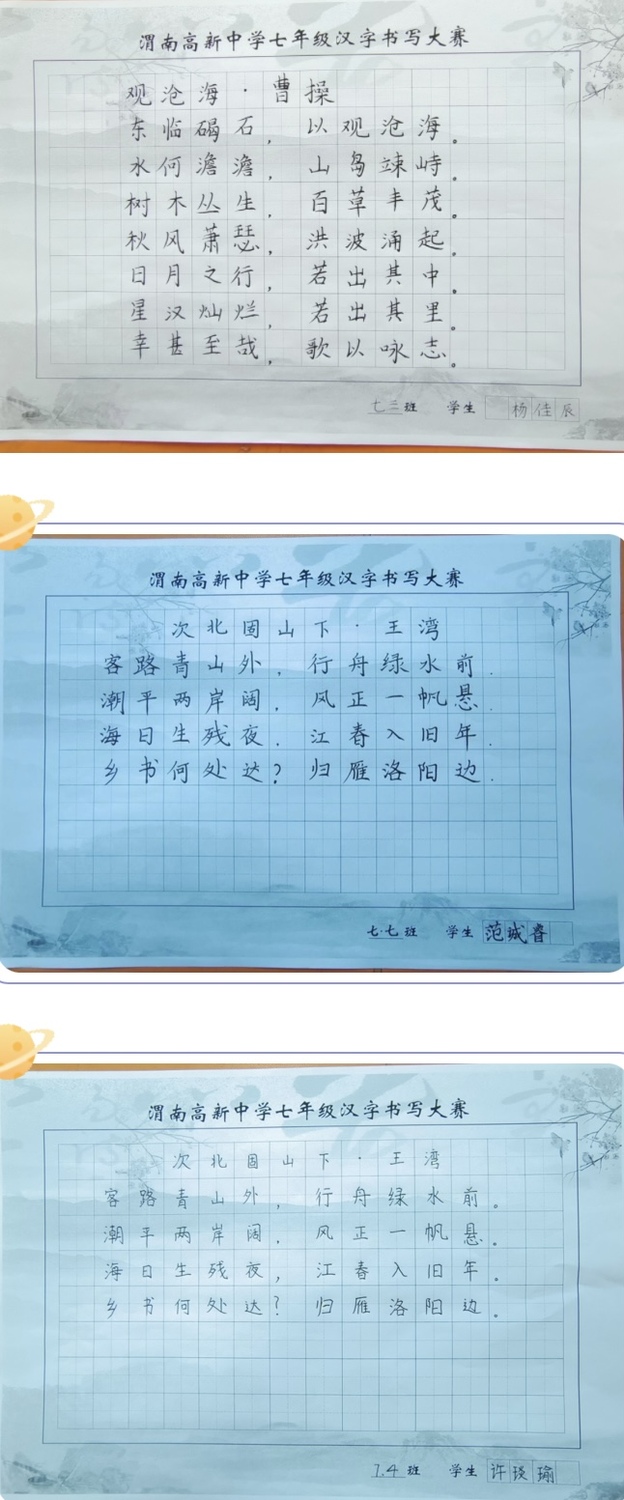 渭南高新中学七年级汉字书写大赛
观沧海·曹操
东临碣石，以观沧海。
水何澹澹，山岛竦峙。
树木丛生，百草丰茂。
秋风萧瑟，洪波涌起。
日月之行，若出其中。
星汉灿烂，若出其里。
幸甚至哉，歌以咏志。
七三班 学生 杨佳辰
渭南高新中学七年级汉字书写大赛
次北固山下·王湾
客路青山外，行舟绿水前.
潮平两岸阔，风正一帆悬.
海日生残夜.江春入旧年.
乡书何处达?归雁洛阳边.
七·七班 学生 范城睿
渭南高新中学七年级汉字书写大赛
次北固山下·王湾
客路青山外，行舟绿水前。
潮平两岸阔.风正一帆悬。
海日生残夜，江春入旧年。
乡书何处达?归雁洛阳边。
7.4班 学生 许琰瑜